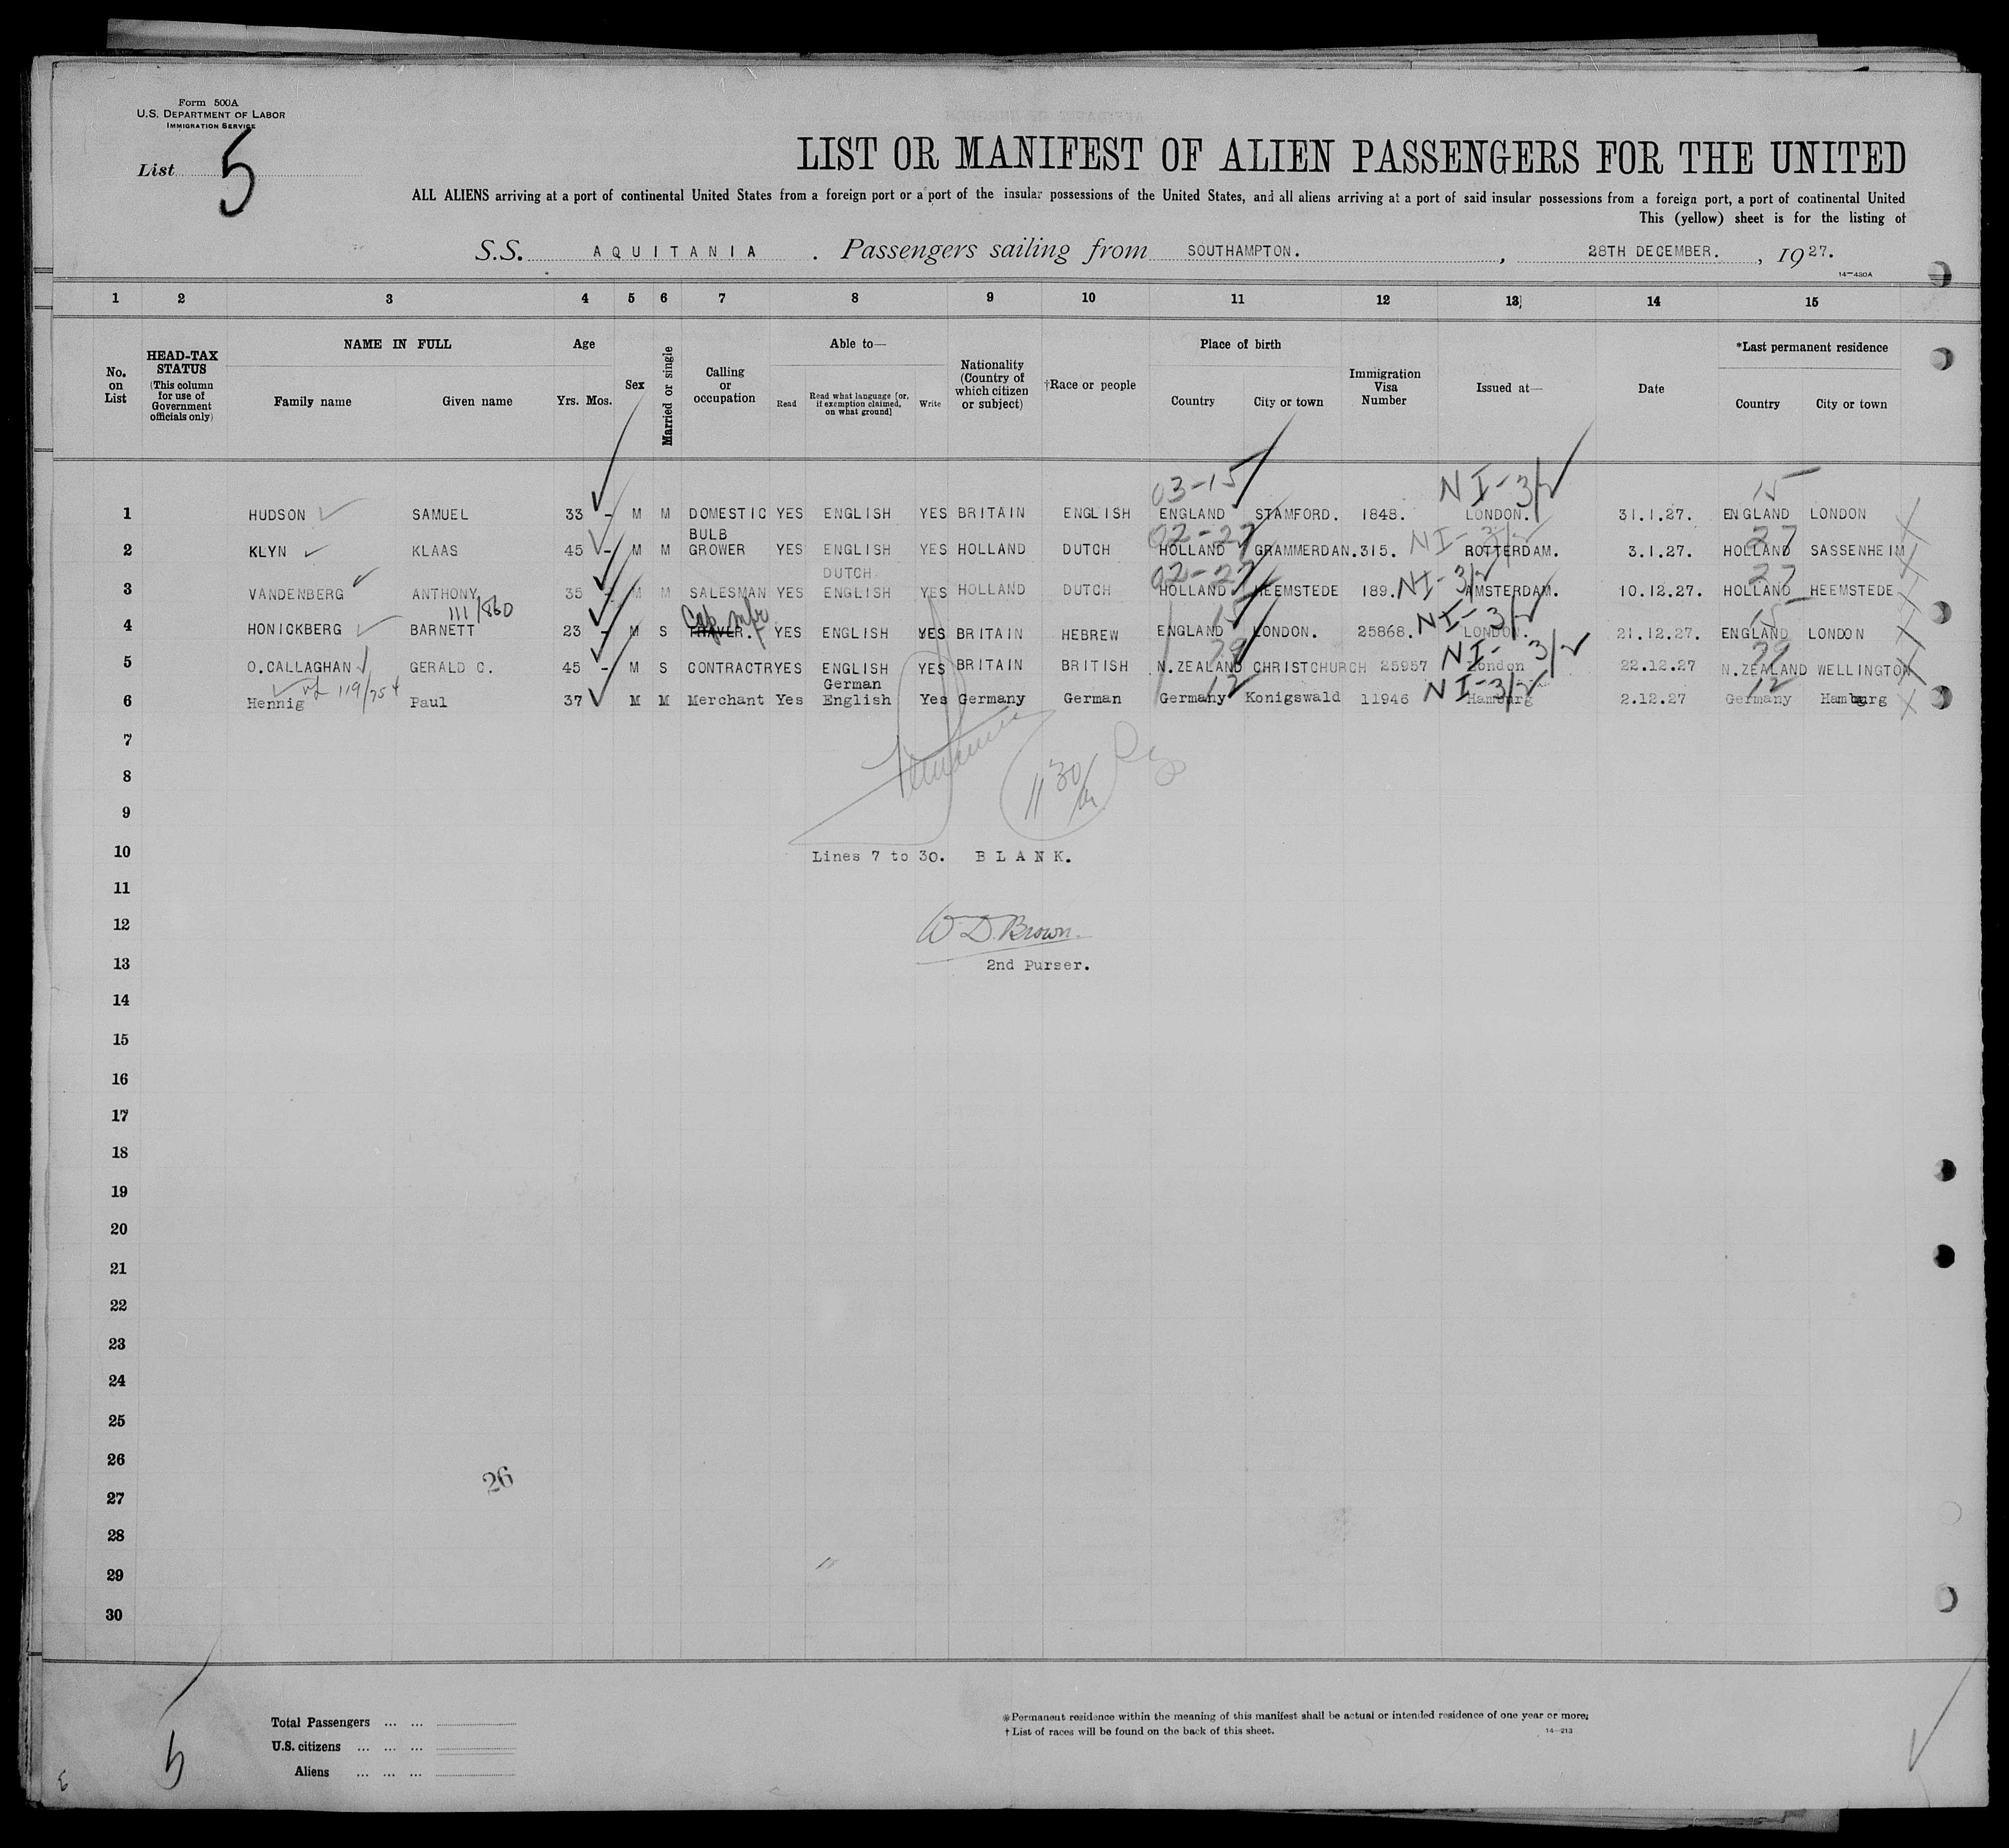 Form 500A
U.S. DEPARTMENT OF LABOR
IMMIGRATION SERVICE
List 5
LIST OR MANIFEST OF ALIEN PASSENGERS FOR THE UNITED
ALL ALIENS arriving at a port of continental United States from a foreign port or a port of the insular possessions of the United States, and all aliens arriving at a port of said insular possessions from a foreign port, a port of continental United
This (yellow) sheet is for the listing of
S.S. AQUITANIA. Passengers sailing from SOUTHAMPTON., 28TH DECEMBER., 1927.
14-430A
1 2 3 4 5 6 7 8 9 10 11 12 13 14 15
No. on List
HEAD-TAX STATUS (This column for use of Government officials only)
NAME IN FULL Family name Given name
Age Yrs. Mos.
Sex
Married or single
Calling or occupation
Able to— Read Read what language [or, if exemption claimed, on what ground] Write
Nationality (Country of which citizen or subject)
†Race or people
Place of birth Country City or town
Immigration Visa Number
Issued at—
Date
*Last permanent residence Country City or town
03-15 NI-3/2 15
1 HUDSON SAMUEL 33 - M M DOMESTIC YES ENGLISH YES BRITAIN ENGLISH ENGLAND STAMFORD. 1848. LONDON. 31.1.27. ENGLAND LONDON
BULB 02-27 NI-3/2 27
2 KLYN KLAAS 45 - M M GROWER YES ENGLISH YES HOLLAND DUTCH HOLLAND GRAMMERDAN. 315. ROTTERDAM. 3.1.27. HOLLAND SASSENHEIM
DUTCH 02-27 NI-3/2 27
3 VANDENBERG ANTHONY 35 - M M SALESMAN YES ENGLISH YES HOLLAND DUTCH HOLLAND HEEMSTEDE 189. AMSTERDAM. 10.12.27. HOLLAND HEEMSTEDE
111/860 Cap mfr 15 NI-3/2 15
4 HONICKBERG BARNETT 23 - M S YES ENGLISH YES BRITAIN HEBREW ENGLAND LONDON. 25868. LONDON. 21.12.27. ENGLAND LONDON
79 NI-3/2
5 O.CALLAGHAN GERALD C. 45 - M S CONTRACTR YES ENGLISH YES BRITAIN BRITISH N.ZEALAND CHRISTCHURCH 25957 London 22.12.27 N.ZEALAND WELLINGTON
German 12 NI-3/2 12
6 Hennig Paul 37 M M Merchant Yes English Yes Germany German Germany Konigswald 11946 Hamburg 2.12.27 Germany Hamburg
7
8
11 30
9
10
Lines 7 to 30. BLANK.
11
12
W D. Brown.
13
2nd Purser.
14
15
16
17
18
19
20
21
22
23
24
25
26
26
27
28
29
30
Total Passengers ... ...
U.S. citizens ... ... ...
Aliens ... ... ...
5
*Permanent residence within the meaning of this manifest shall be actual or intended residence of one year or more.
†List of races will be found on the back of this sheet.
14-213